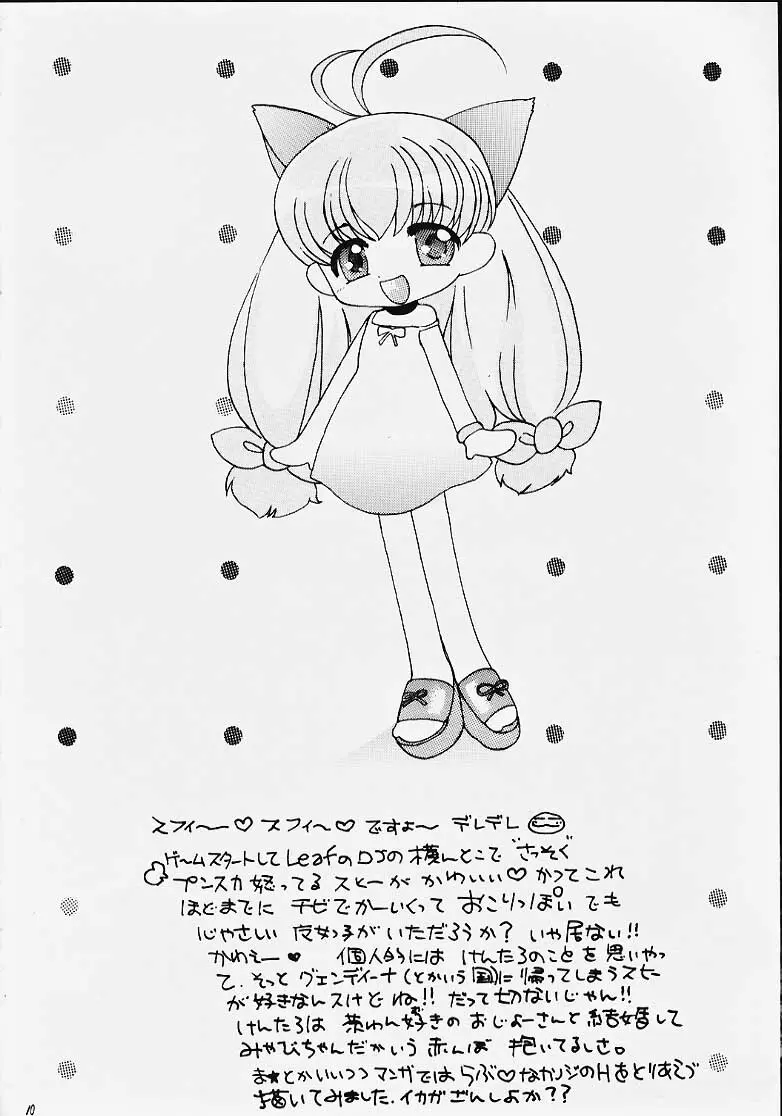 スフィ〜ー♡ スフィ〜♡ ですよ〜 デレデレ
ゲームスタートして LeafのDJの横んとこで さっそく
プンスカ怒ってるスヒーが かわいい♡ かつてこれ
ほどまでに チビでかーいくって おこりっぽい でも
じゃさしい 女っ子が いただろうか? いや居ない!!
かわえー♥ 個人的には けんたろのことを思いやっ
て、そっと グェンディーナ(とかいう国)に 帰ってしまうスヒー
が好きなんスけど ね!! だって切ないじゃん!!
けんたろは 茶わん好きの おじょーさんと 結婚して
みゃびちゃんだかいう 赤んぼ 抱いてるしさ。
ま★とかいいつつ マンガでは らぶ♡なカンジのHをとりあえず
描いてみました。イカがざんしょか??
10